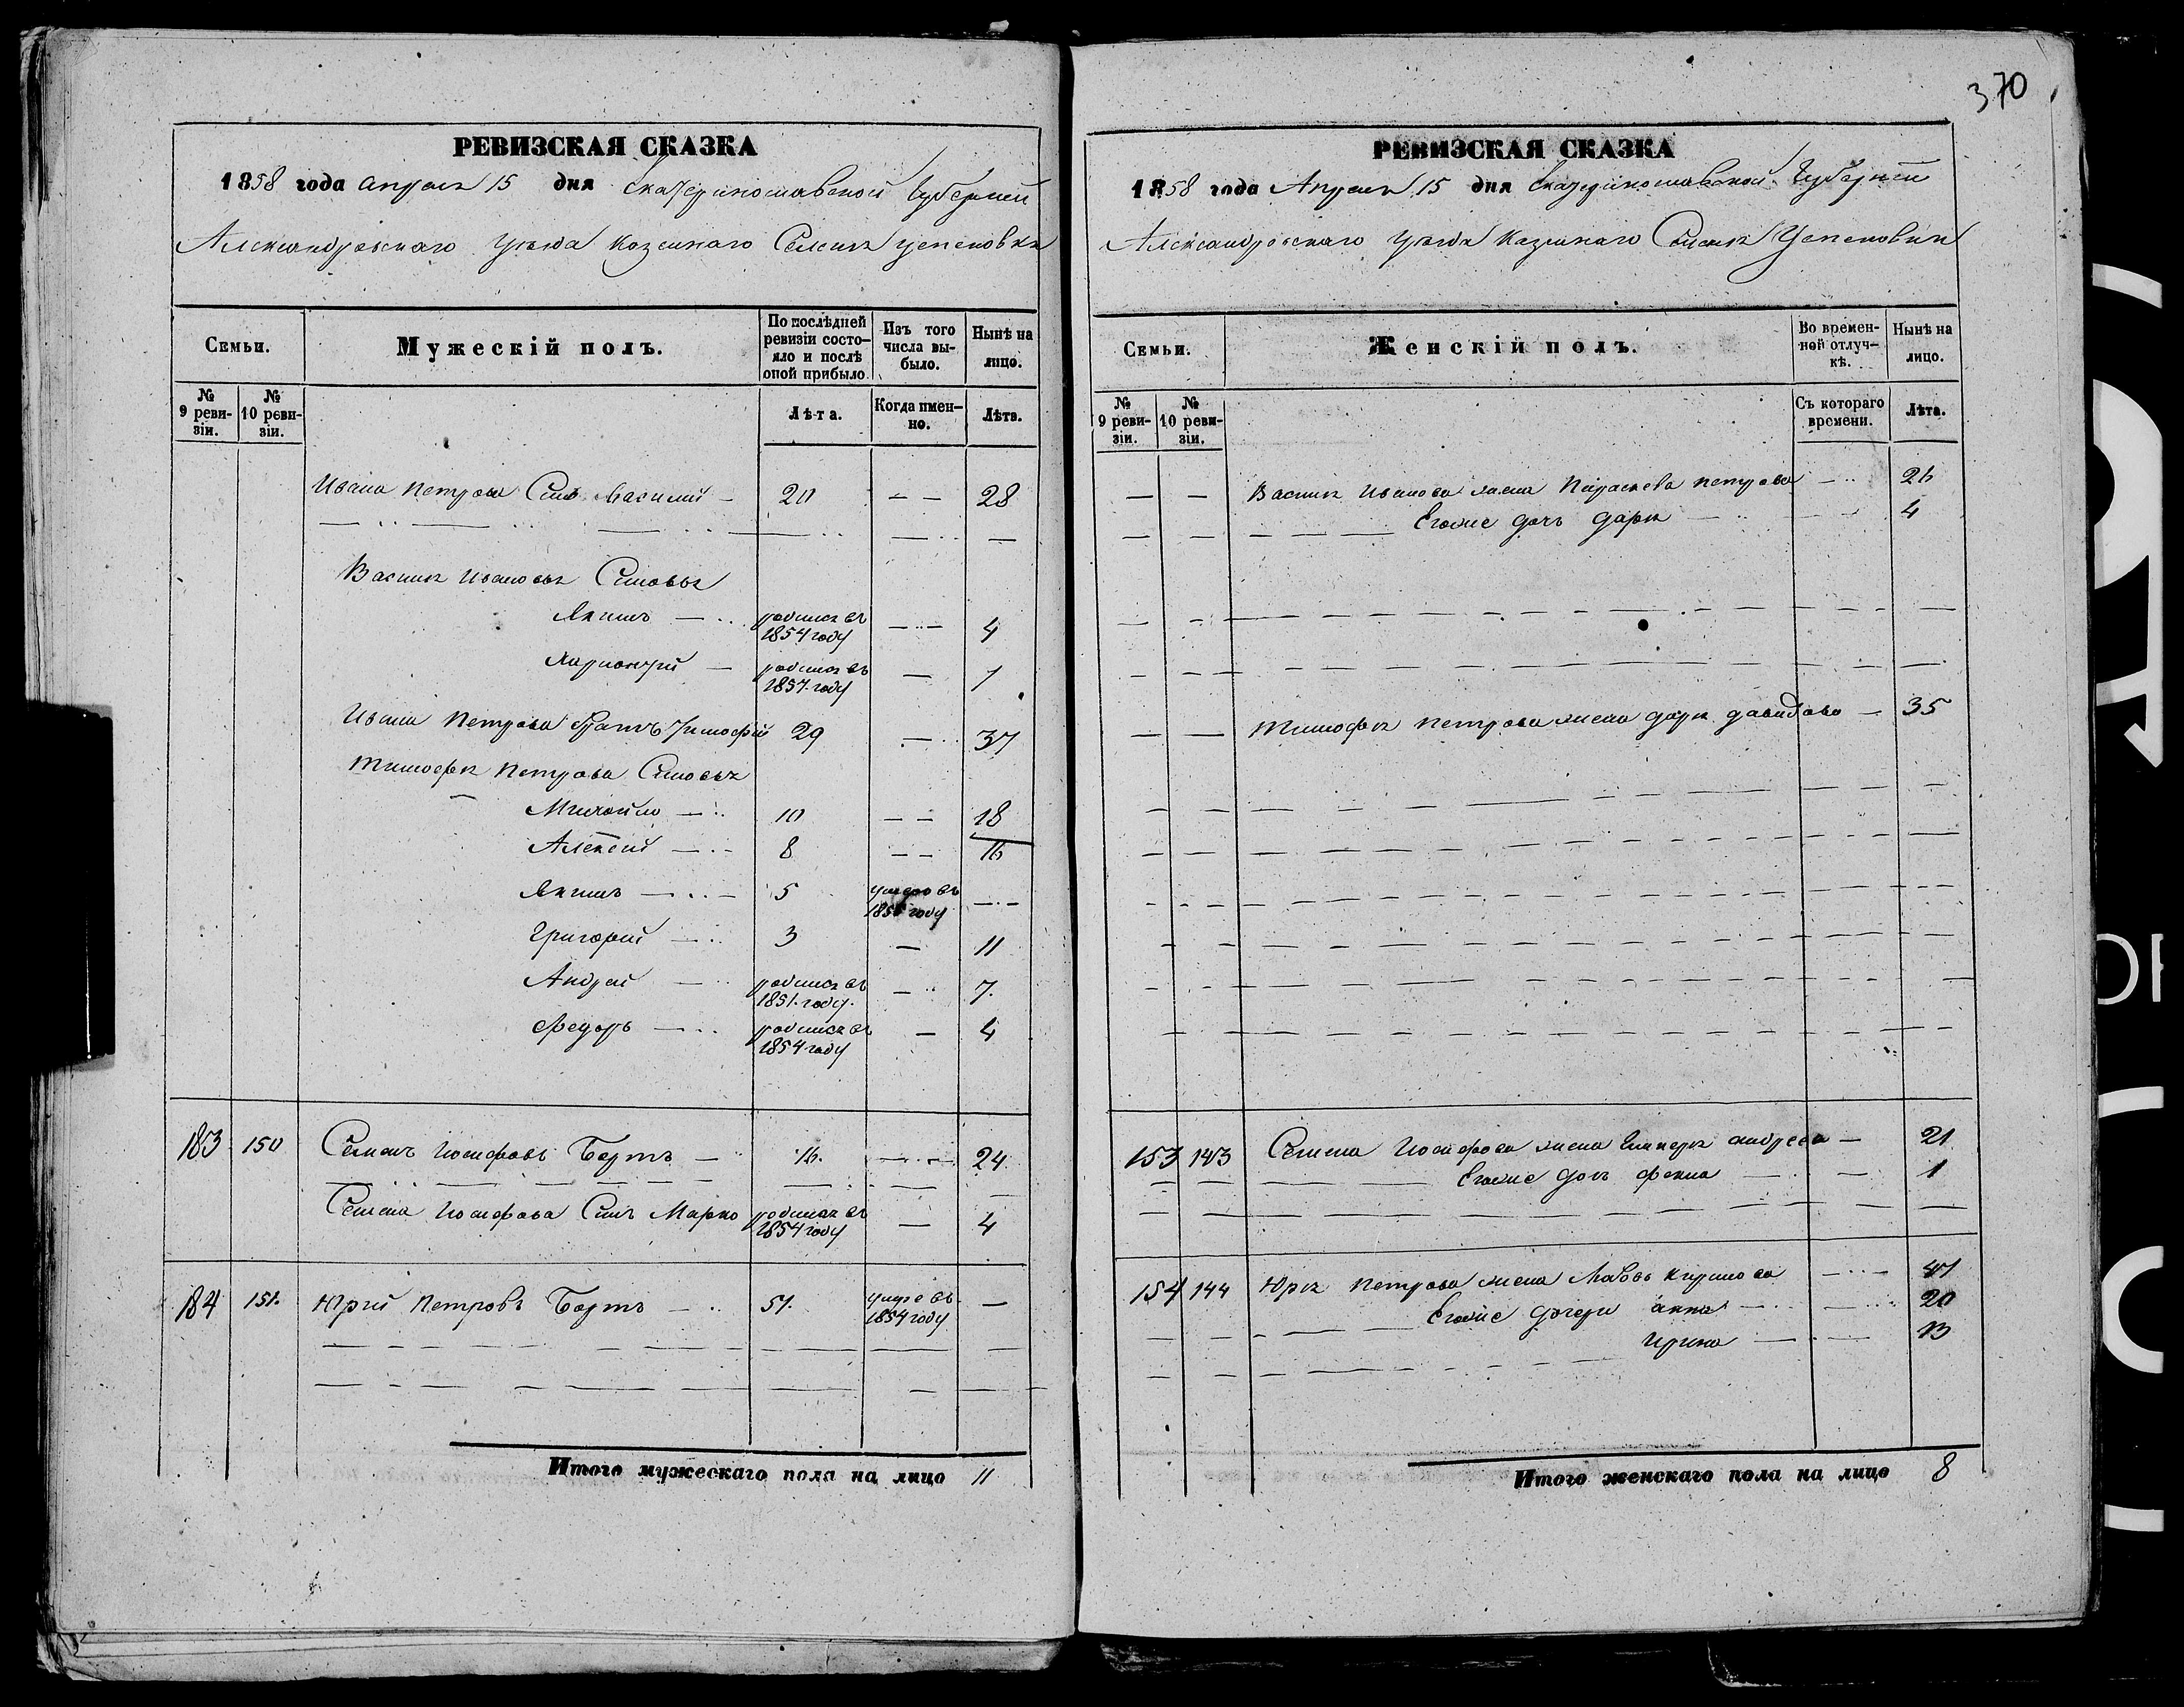 370
РЕВИЗСКАЯ СКАЗКА
1858 года Апреля 15 дня Екатеринославской Губернии
Александровскаго уезда казеннаго Селения Цепеновки
Семьи.
Мужескій полъ.
По послѣдней ревизіи состояло и послѣ оной прибыло
Изъ того числа выбыло.
Нынѣ на лицо.
№ 9 ревизіи.
№ 10 ревизіи.
Лѣта.
Когда именно.
Лѣта.
Ивана Петрова Сынъ Василий 20 28
Василия Иванова Сыновья
Якимъ родился въ 1854 году 4
Харитоній родился въ 1857 году 1
Ивана Петрова братъ Тимофей 29 37
Тимофея Петрова Сыновья
Михайло 10 18
Алексей 8 16
Якимъ 5 умеръ въ году
Григорий 3 11
Андрей родился въ 1851 году 7
Федоръ родился въ 1854 году 4
183 150 Семенъ Иосифовъ Бортъ 16 24
Семена Иосифова Сынъ Марко родился въ 1854 году 4
184 151 Юрий Петровъ Бортъ 51 умре въ 1854 году
Итого мужескаго пола на лицо 11
РЕВИЗСКАЯ СКАЗКА
1858 года Апреля 15 дня Екатеринославской Губернии
Александровскаго уезда казеннаго Селения Цепеновки
Семьи.
Женскій полъ.
Во временной отлучкѣ.
Нынѣ на лицо.
№ 9 ревизіи.
№ 10 ревизіи.
Съ котораго времени.
Лѣта.
Василия Иванова жена Параскева Петрова 26
Егоже дочь Дарья 4
Тимофея Петрова жена Дарья Давидова 35
153 143 Семена Иосифова жена Гликерья Андреева 21
Егоже дочь Фекла 1
154 144 Юрия Петрова жена Любовь Кирилова 47
Егоже дочери Анна 20
Ирина 13
Итого женскаго пола на лицо 8